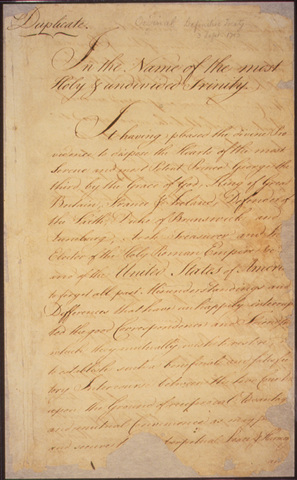 Duplicate.
Original Definitive Treaty
In the Name of the most
Holy & undivided Trinity.
It having pleased the divine Pro
vidence to dispose the Hearts of the most
Serene and most Potent Prince George the
third, by the Grace of God, King of Great
Britain, France & Ireland, Defender of
the Faith, Duke of Brunswick and
Lunebourg, Arch Treasurer and
Elector of the Holy Roman Empire
and of the United States of America
to forget all past Misunderstandings and
Differences that have unhappily interrup
ted the good Correspondence and Friendship
which they mutually wish to
to establish such a beneficial and satisfac
tory Intercourse between the two Countries
upon the Ground of reciprocal Advantages
and mutual Convenience as may
and secure perpetual Peace &